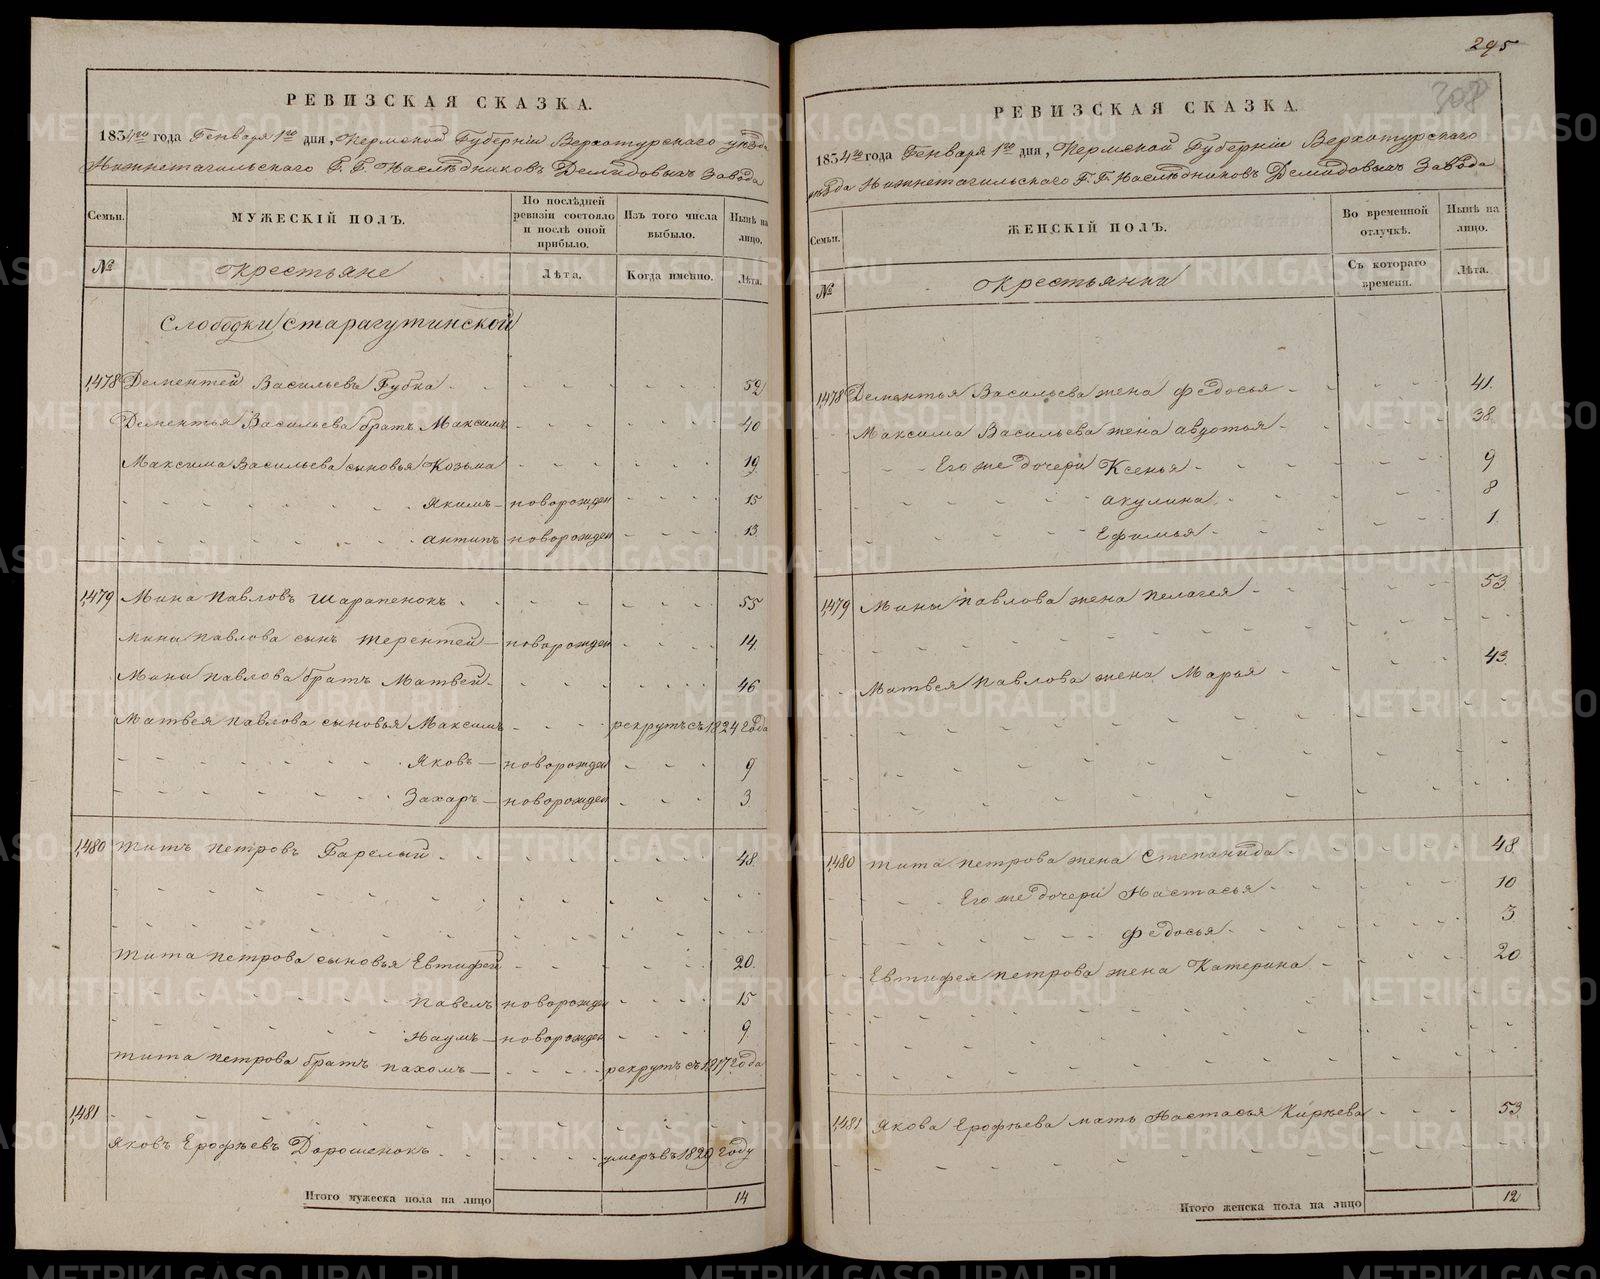 295
308
РЕВИЗСКАЯ СКАЗКА.
1834го года Генваря 1го дня, Пермской Губерніи Верхотурскаго уѣзда
Нижнетагильскаго Г. Г. Наслѣдниковъ Демидовыхъ Завода
Семьи. МУЖЕСКІЙ ПОЛЪ. По послѣдней ревизіи состояло и послѣ оной прибыло. Изъ того числа выбыло. Нынѣ на лицо.
№ Крестьяне Лѣта. Когда именно. Лѣта.
Слободки Старагутинской
1,478 Дементей Васильевъ Губка 59
Дементья Васильева братъ Максимъ 40
Максима Васильева сыновья Козьма 19
Якимъ новорожден 15
Антипъ новорожден 13
1,479 Мина Павловъ Шарапенокъ 55
Мины Павлова сынъ Терентей новорожден 14
Мины Павлова братъ Матвей 46
Матвея Павлова сыновья Максимъ рекрутъ съ 1824 года
Яковъ новорожден 9
Захаръ новорожден 3
1,480 Титъ Петровъ Гарелый 48
Тита Петрова сыновья Евтифей 20
Павелъ новорожден 15
Наумъ новорожден 9
Тита Петрова братъ Пахомъ рекрутъ съ 1817 года
1,481
Яковъ Ерофѣевъ Дорошенокъ умеръ въ 1829 году
Итого мужеска пола на лицо 14
РЕВИЗСКАЯ СКАЗКА.
1834го года Генваря 1го дня, Пермской Губерніи Верхотурскаго
уѣзда Нижнетагильскаго Г. Г. Наслѣдниковъ Демидовыхъ Завода
Семьи. ЖЕНСКІЙ ПОЛЪ. Во временной отлучкѣ. Нынѣ на лицо.
№ Крестьянки Съ котораго времени. Лѣта.
1,478 Дементья Васильева жена Федосья 41
Максима Васильева жена Авдотья 38
Его же дочери Ксенья 9
Акулина 8
Ефимья 1
1,479 Мины Павлова жена Пелагея 53
Матвея Павлова жена Марья 43
1,480 Тита Петрова жена Степанида 48
Его же дочери Настасья 10
Федосья 3
Евтифея Петрова жена Катерина 20
1,481 Якова Ерофѣева мать Настасья Кирѣева 53
Итого женска пола на лицо 12
METRIKI.GASO-URAL.RU